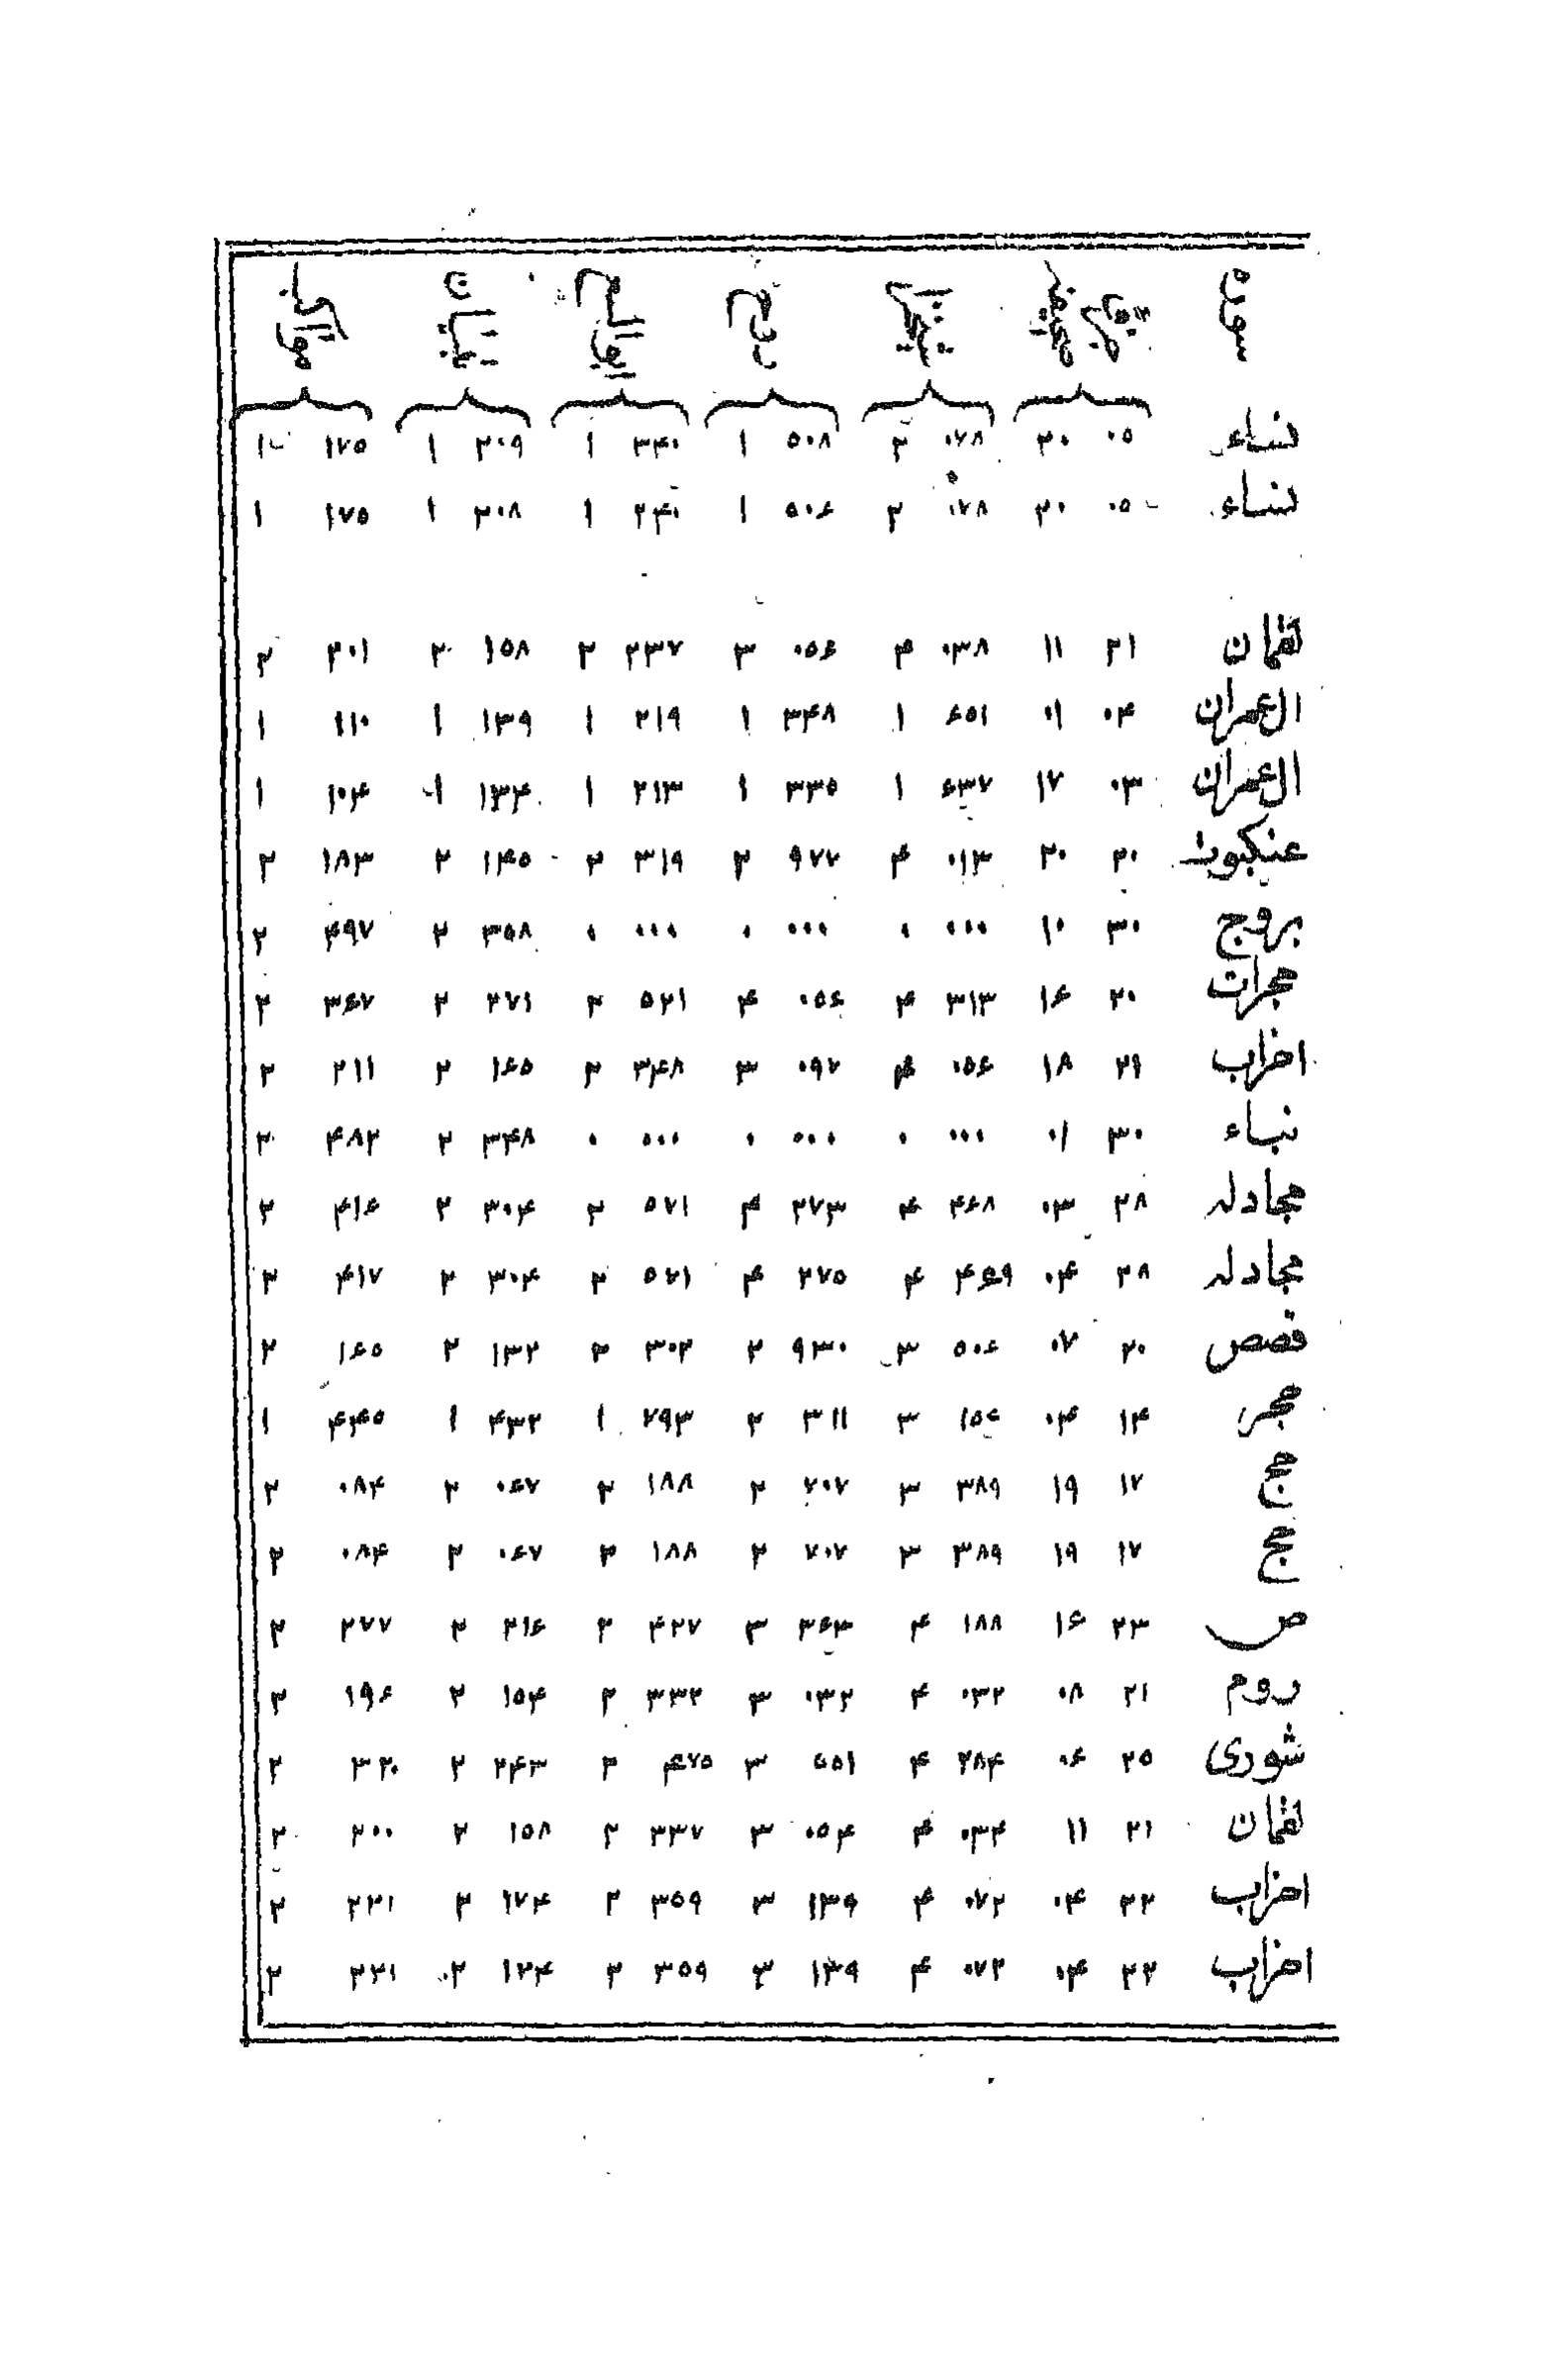 نساء ۰۵ ۲۰ ۰۷۸ ۲ ۵۰۸ ۱ ۳۴۰ ۱ ۲۰۹ ۱ ۱۷۵ ۱
نساء ۰۵ ۲۰ ۰۷۸ ۲ ۵۰۶ ۱ ۲۴۰ ۱ ۲۰۸ ۱ ۱۷۵ ۱
لقمان ۲۱ ۱۱ ۰۳۸ ۴ ۰۵۶ ۳ ۲۳۷ ۲ ۱۵۸ ۲ ۲۰۱ ۲
ال عمران ۰۴ ۰۱ ۶۵۱ ۱ ۳۴۸ ۱ ۲۱۹ ۱ ۱۳۹ ۱ ۱۱۰ ۱
ال عمران ۰۳ ۱۷ ۶۳۷ ۱ ۳۳۵ ۱ ۲۱۳ ۱ ۱۳۴ ۱ ۱۰۴ ۱
عنکبوت ۲۰ ۲۰ ۰۱۳ ۴ ۹۷۷ ۲ ۳۱۹ ۲ ۱۴۵ ۲ ۱۸۳ ۲
بروج ۳۰ ۱۰ ۰۰۰ ۰ ۰۰۰ ۰ ۰۰۰ ۰ ۳۵۸ ۲ ۴۹۷ ۲
حجرات ۲۰ ۱۶ ۳۱۳ ۴ ۰۵۶ ۴ ۵۲۱ ۲ ۲۷۱ ۲ ۳۶۷ ۲
احزاب ۲۱ ۱۸ ۰۵۶ ۴ ۰۹۲ ۳ ۳۴۸ ۲ ۱۶۵ ۲ ۲۱۱ ۲
نباء ۳۰ ۰۱ ۰۰۰ ۰ ۰۰۰ ۰ ۰۰۰ ۰ ۳۴۸ ۲ ۴۸۲ ۲
مجادلہ ۲۸ ۰۳ ۴۶۸ ۴ ۲۷۳ ۴ ۵۷۱ ۲ ۳۰۴ ۲ ۴۱۶ ۲
مجادلہ ۲۸ ۰۴ ۴۶۹ ۴ ۲۷۵ ۴ ۵۷۱ ۲ ۳۰۴ ۲ ۴۱۷ ۲
قصص ۲۰ ۰۷ ۵۰۶ ۳ ۹۳۰ ۲ ۳۰۲ ۲ ۱۳۲ ۲ ۱۶۵ ۲
حجر ۱۴ ۰۴ ۱۵۶ ۳ ۳۱۱ ۲ ۷۹۳ ۱ ۴۳۲ ۱ ۴۴۵ ۱
حج ۱۷ ۱۹ ۳۸۹ ۳ ۷۰۷ ۲ ۱۸۸ ۲ ۰۶۷ ۲ ۰۸۴ ۲
حج ۱۷ ۱۹ ۳۸۹ ۳ ۷۰۷ ۲ ۱۸۸ ۲ ۰۶۷ ۲ ۰۸۴ ۲
ص ۲۳ ۱۶ ۱۸۸ ۴ ۳۶۳ ۳ ۴۲۷ ۲ ۲۱۶ ۲ ۲۷۷ ۲
روم ۲۱ ۰۸ ۰۳۲ ۴ ۰۳۲ ۳ ۳۳۲ ۲ ۱۵۴ ۲ ۱۹۶ ۲
شوری ۲۵ ۰۶ ۲۸۴ ۴ ۵۵۱ ۳ ۴۷۵ ۲ ۲۴۳ ۲ ۳۲۰ ۲
لقمان ۲۱ ۱۱ ۰۳۴ ۴ ۰۵۴ ۳ ۳۳۷ ۲ ۱۵۸ ۲ ۲۰۰ ۲
احزاب ۲۲ ۰۴ ۰۷۲ ۴ ۱۳۹ ۳ ۳۵۹ ۲ ۱۷۴ ۲ ۲۲۱ ۲
احزاب ۲۲ ۰۴ ۰۷۲ ۴ ۱۳۹ ۳ ۳۵۹ ۲ ۱۲۴ ۲ ۲۲۱ ۲